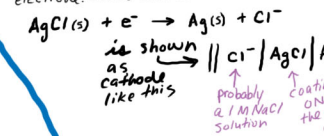 AgCl(s) + e⁻ → Ag(s) + Cl⁻
is shown
as
cathode
like this
|| Cl⁻ | AgCl |
probably
a 1M NaCl
solution
ON
the